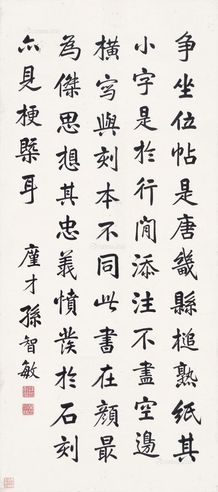 争坐位帖是唐畿縣槌熟紙其
小字是於行間添注不盡空邊
橫寫與刻本不同此書在顏最
為傑思想其忠義憤發於石刻
亦見梗槩耳
廑才孫智敏